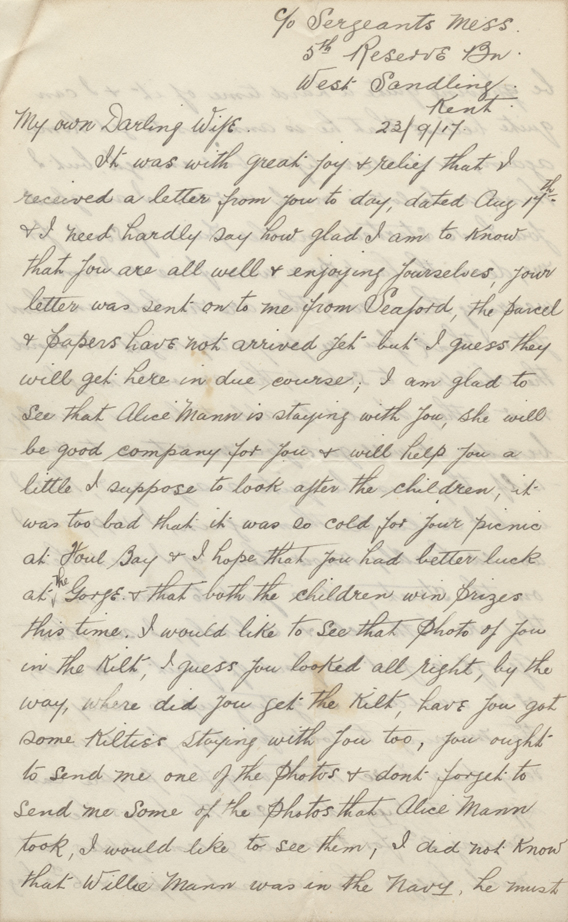 c/o Sergeants Mess.
5th Reserve Bn.
West Sandling.
Kent
My own Darling Wife. 23/9/17.
It was with great joy & relief that I
received a letter from you to day, dated Aug 17th.
& I need hardly say how glad I am to know
that you are all well & enjoying yourselves, your
letter was sent on to me from Seaford, the parcel
& papers have not arrived yet but I guess they
will get here in due course; I am glad to
see that Alice Mann is staying with you, she will
be good company for you & will help you a
little I suppose to look after the children, it
was too bad that it was so cold for your picnic
at Foul Bay & I hope that you had better luck
at the Gorge & that both the children win prizes
this time. I would like to see that Photo of you
in the Kilt, I guess you looked all right, by the
way, where did you get the Kilt, have you got
some Kilties staying with you too, you ought
to send me one of the Photos & dont forget to
send me some of the Photos that Alice Mann
took, I would like to see them; I did not know
that Willie Mann was in the Navy, he must